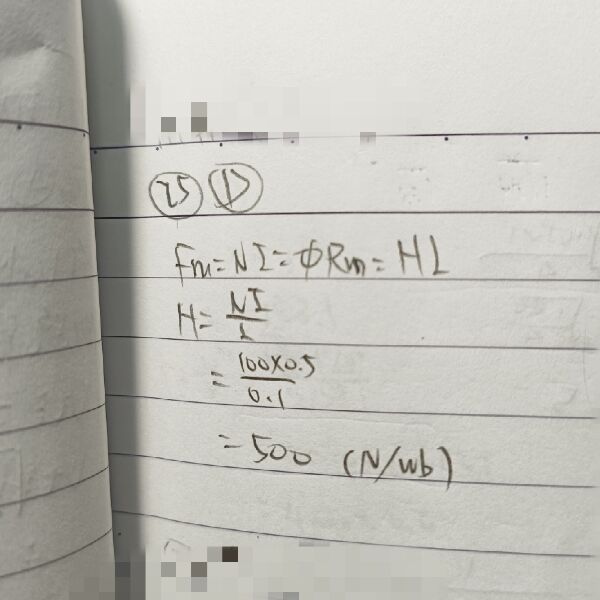 25 ①
Fm=NI=ΦRm=Hl
H=NI/l
=100×0.5/0.1
=500 (N/wb)